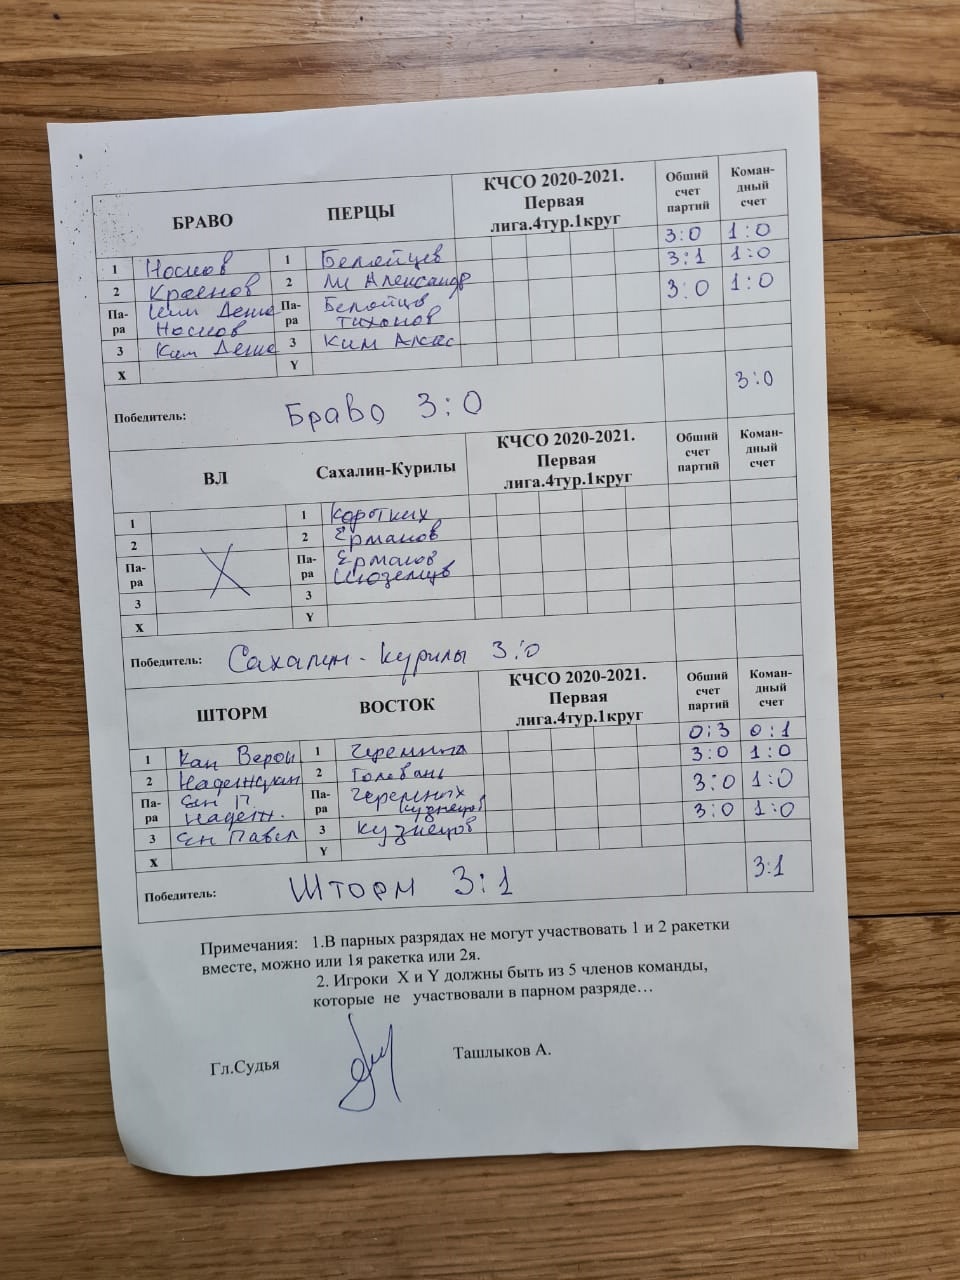 БРАВО ПЕРЦЫ КЧСО 2020-2021. Первая лига.4тур.1круг Общий счет партий Коман-дный счет
1 Носков 1 Белейцев 3:0 1:0
2 Краснов 2 Ли Александр 3:1 1:0
Па-ра Ким Денис Носков Па-ра Белейцев Тихонов 3:0 1:0
3 Ким Денис 3 Ким Алекс
X Y
Победитель: Браво 3:0 3:0
ВЛ Сахалин-Курилы КЧСО 2020-2021. Первая лига.4тур.1круг Общий счет партий Коман-дный счет
1 1 Коротких
2 2 Ермаков
Па-ра Па-ра Ермаков Иноземцев
3 3
X Y
Победитель: Сахалин-Курилы 3:0
ШТОРМ ВОСТОК КЧСО 2020-2021. Первая лига.4тур.1круг Общий счет партий Коман-дный счет
1 Кан 1 0:3 0:1
2 2 3:0 1:0
Па-ра Ен П. Надежд. Па-ра Черемных Кузнецов 3:0 1:0
3 Ен Павел 3 Кузнецов 3:0 1:0
X Y
Победитель: Шторм 3:1 3:1
Примечания: 1.В парных разрядах не могут участвовать 1 и 2 ракетки
вместе, можно или 1я ракетка или 2я.
2. Игроки X и Y должны быть из 5 членов команды,
которые не участвовали в парном разряде…
Гл.Судья Ташлыков А.